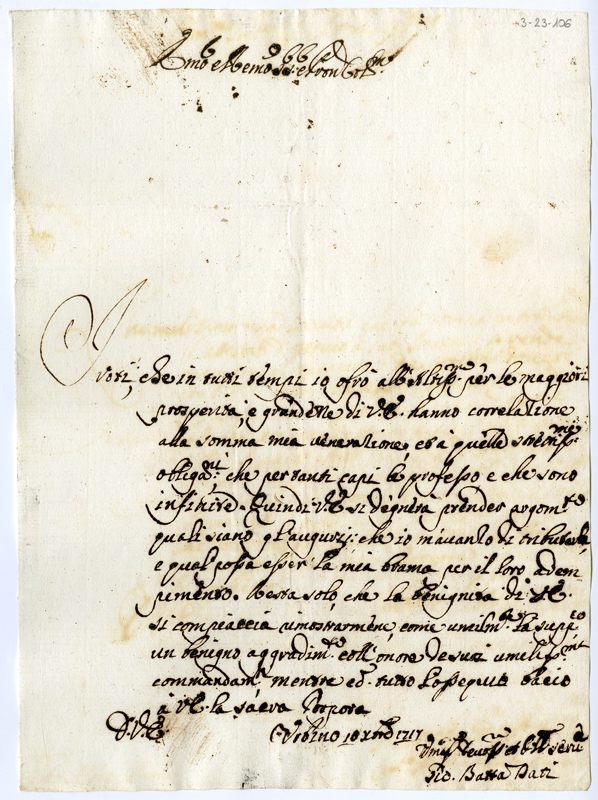 3-23-106
Em̃o e Rev̄mo Sig.re
I voti, che in tutti tempi io ofro all'Altiss.mo per le maggiori
prosperità, e grandezze di V.E. hanno correlatione
alla somma mia veneratione, et à quelle
obligaz.ni che per tanti capi le professo e che sono
infinite. Quindi V.E. si degnerà prender argom.to
quali siano gl'augurij, che io m'avanzo di tributarle,
e qual possa esser la mia brama per il loro adem
pimento. Resta solo, che la benignità di V.E.
si compiaccia dimostrarmene, come umilm.te la supp.co
un benigno aggradim.to coll'onore de suoi umaniss.mi
commandam.ti mentre con tutto l'ossequio bacio
à V.E. la sacra Porpora
D.V.E.
Urbino 18 Xbre 1717
Um.o Devot.mo et Obl.mo Serv.re
Gio. Batta Paci